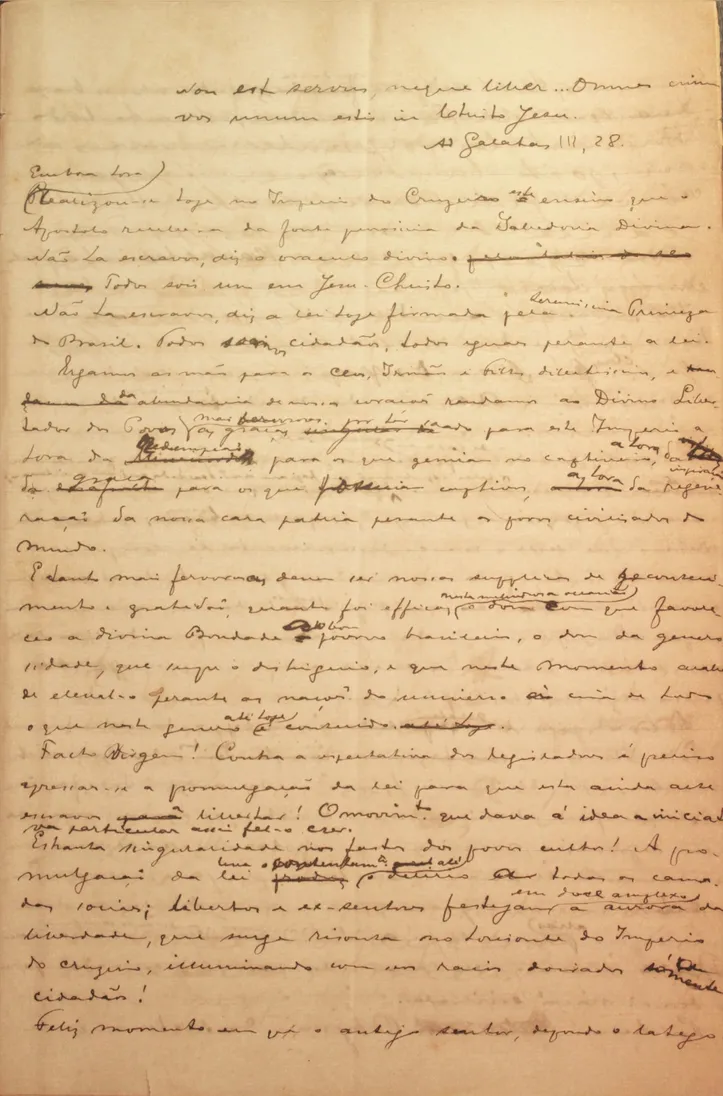 Non est servus, neque liber... Omnes enim
vos unum estis in Christo Jesu.
Ad Galatas III, 28.
Em boa hora
Realizou-se hoje no Imperio do Cruzeiro este ensino que o
Apostolo recebera da fonte da Sabedoria Divina.
Não ha escravos, diz o oraculo divino.
Todos sois um em Jesu-Christo.
Não ha escravos, diz a lei hoje firmada pela Serenissima Princeza
do Brasil. Todos cidadãos, todos iguaes perante a lei.
Ergamos as mãos para os céus, Irmãos e Filhos dilectissimos, e
da abundancia de nossos corações rendamos ao Divino Liber-
tador dos Povos as graças mais fervorosas por ter para este Imperio a
hora da Redempção para os que gemiam no captiveiro, a hora
da graça para os que captivos, a hora da regene-
ração da nossa cara patria perante os povos civilisados do
mundo.
E tanto mais fervorosas devem ser nossas supplicas de reconheci-
mento e gratidão, quanto foi efficaz nesta melindrosa o dom com que favore-
ceo a divina Bondade o povo brasileiro, o dom da genero-
sidade, que sempre o distinguio, e que neste momento acaba
de eleval-o perante as nações do universo acima de tudo
o que neste genero até hoje é conhecido.
Facto Virgem! Contra a expectativa dos legisladores é preciso
apressar-se a promulgação da lei para que esta ainda ache
escravos libertar! O movimto que dava á idea a iniciati-
va particular assim fel-o crer.
Estranha singularidade nos fastos dos povos cultos! A pro-
mulgação da lei teve o contentamto e até o delirio de todas as cama-
das sociaes; libertos e ex-senhores festejam em doce amplexo a aurora da
liberdade, que surge risonha no horizonte do Imperio
do cruzeiro, illuminando com seus raios dourados sómente
cidadãos!
Feliz momento em que o antigo senhor, depondo o latego